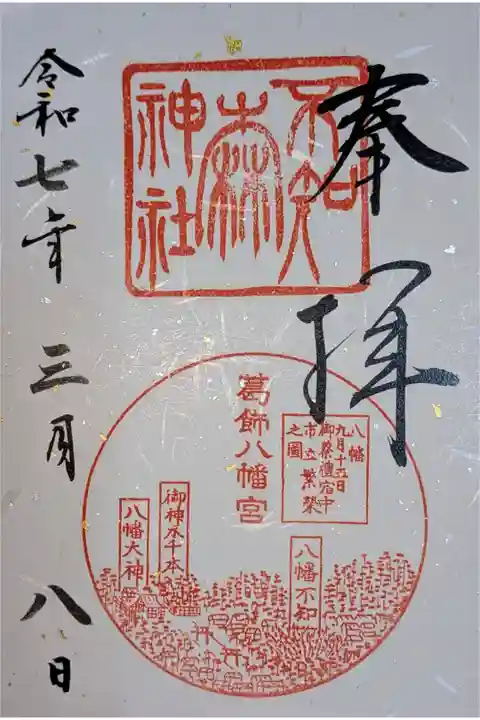 奉拝
不知
森
神社
葛飾八幡宮
八幡
九月十五日
御祭禮宿中
市立繁榮
之圖
八幡不知
御神木千本
八幡大神
令和七年 三月 八日